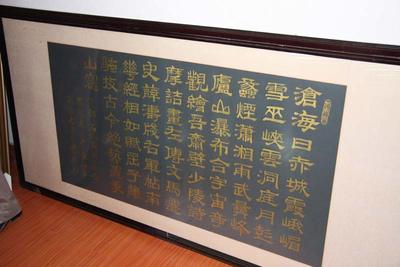 滄海日赤城霞峨嵋
雪巫峽雲洞庭月彭
蠡煙瀟湘雨武夷峰
廬山瀑布合宇宙奇
觀繪吾齋壁少陵詩
摩詰畫左傳文馬遷
史薛濤牋右軍帖南
華經相如賦屈子離
騷收古今絕藝置我
山窗